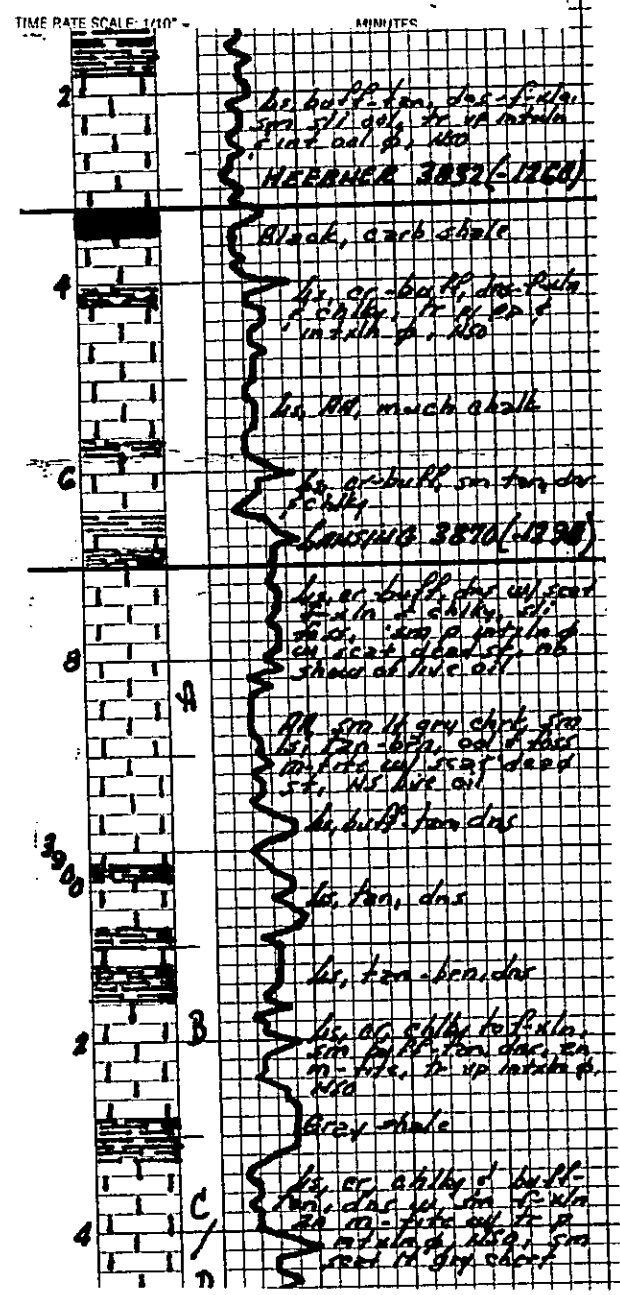 TIME RATE SCALE: 1/10" =
MINUTES
2
Ls, buff-tan, dns-f-xln,
sm sli ool, tr vp intxln
& int ool φ, NSO
HEEBNER 3832(-1260)
Black, carb shale
4
Ls, cr-buff, dns-f-xln
& chlky, tr
intxln φ, NSO
Ls, AA, much chalk
6
Ls, cr-buff, sm tan, dns
& chlky
LANSING 3870(-1298)
Ls, cr-buff, dns w/ scat
f-xln & chlky, sli
foss, sm p intxln φ
w scat dead st, no
show of live oil
8
A
AA sm lt gry chrt, sm
ls, tan-brn, ool & foss
m-tite w/ scat dead
st, NS live oil
Ls, buff-tan, dns
3900
Ls, tan, dns
Ls, tan-brn, dns
B
2
Ls, cr, chlky to f-xln,
sm buff-tan, dns,
m-tite, tr vp intxln φ,
NSO
Gray shale
C
/
D
4
Ls, cr, chlky & buff-
tan, dns w sm f-xln
m-tite w/ tr p
intxln φ, NSO, sm
scat lt gry chert